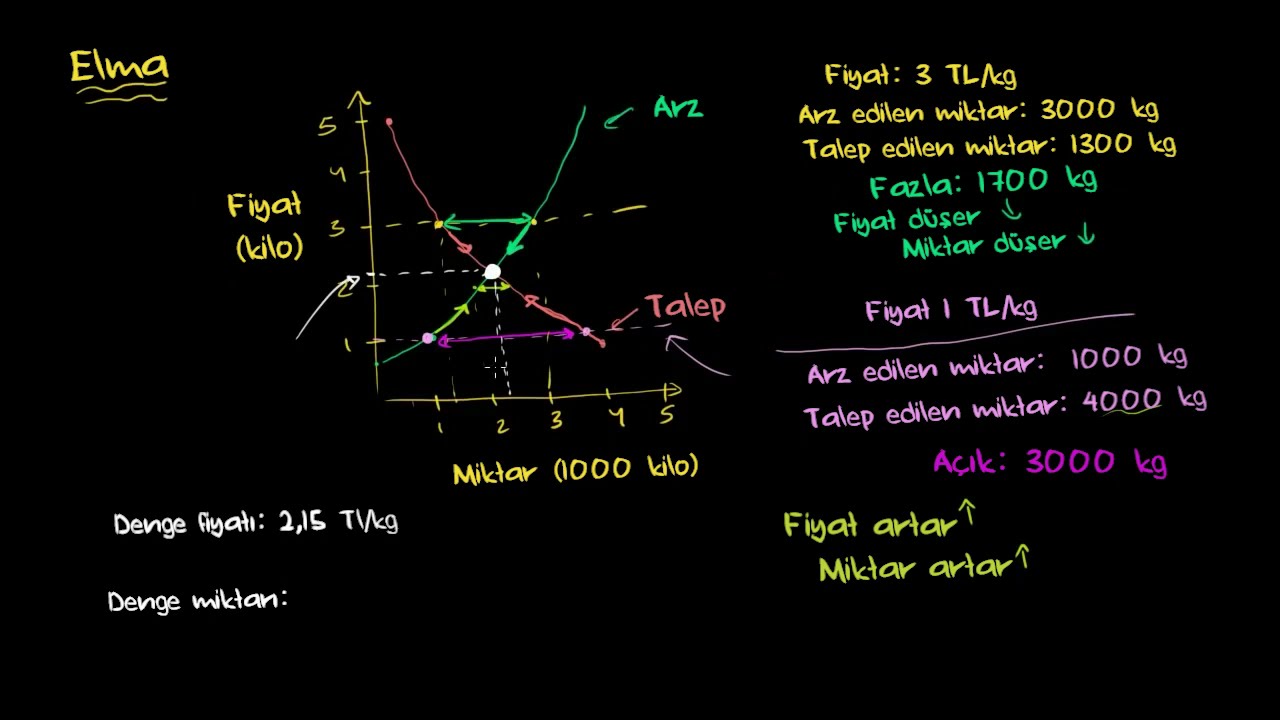 Elma
Arz
Fiyat
(kilo)
5
4
3
2
1
Talep
1
2
3
4
5
Miktar (1000 kilo)
Denge fiyatı: 2,15 Tl/kg
Denge miktarı:
Fiyat: 3 TL/kg
Arz edilen miktar: 3000 kg
Talep edilen miktar: 1300 kg
Fazla: 1700 kg
Fiyat düşer ↓
Miktar düşer ↓
Fiyat 1 TL/kg
Arz edilen miktar: 1000 kg
Talep edilen miktar: 4000 kg
Açık: 3000 kg
Fiyat artar ↑
Miktar artar ↑